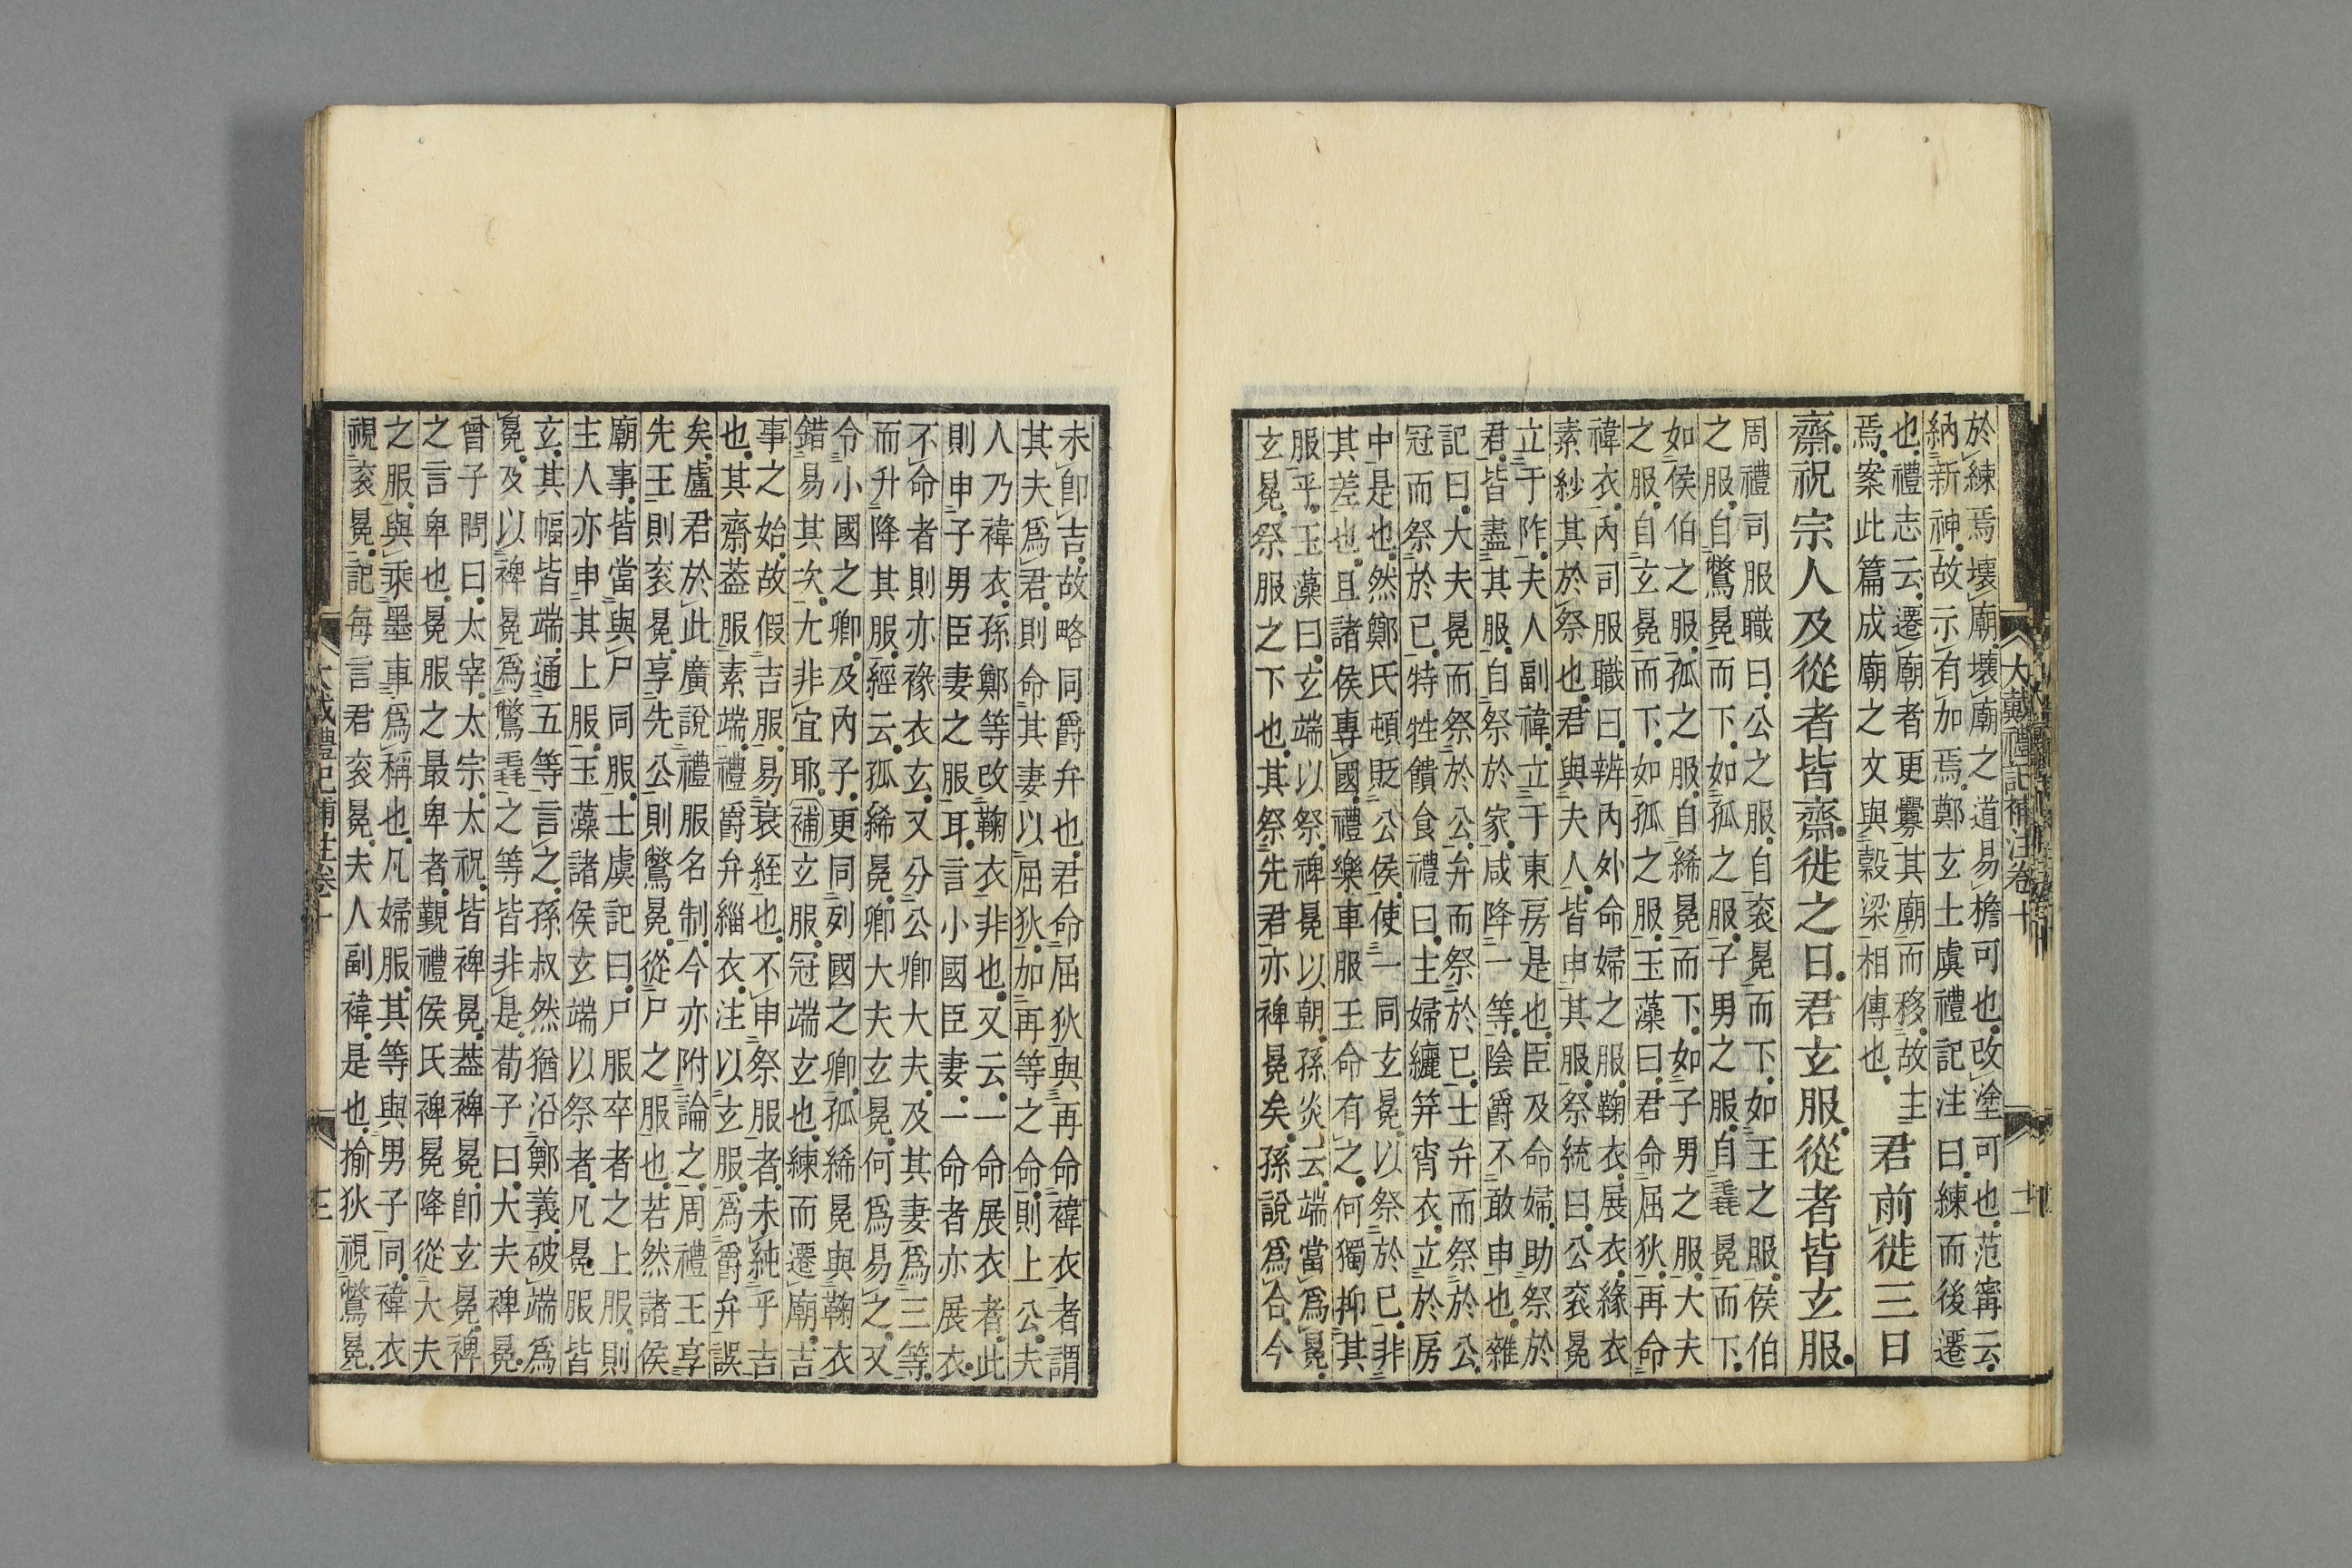 大戴禮記補注卷十
於練焉壞廟壞廟之道易檐可也改塗可也范甯云
納新神故示有加焉鄭玄士虞禮記注曰練而後遷
也禮志云遷廟者更釁其廟而移故主
焉案此篇成廟之文與穀梁相傳也
君前徙三日
齋祝宗人及從者皆齋徙之日君玄服從者皆玄服
周禮司服職曰公之服自袞冕而下如王之服侯伯
之服自鷩冕而下如孤之服子男之服自毳冕而下
如侯伯之服孤之服自絺冕而下如子男之服大夫
之服自玄冕而下如孤之服玉藻曰君命屈狄再命
褘衣内司服職曰辨内外命婦之服鞠衣展衣緣衣
素紗其於祭也君與夫人皆申其服祭統曰公袞冕
立于阼夫人副褘立于東房是也臣及命婦助祭於
君皆盡其服自祭於家咸降一等陰爵不敢申也雜
記曰大夫冕而祭於公弁而祭於已士弁而祭於公
冠而祭於已特牲饋食禮曰主婦纚笄宵衣立於房
中是也然鄭氏頓貶公侯使一同玄冕以祭於已非
其差也且諸侯專國禮樂車服王命有之何獨抑其
服乎玉藻曰玄端以祭裨冕以朝孫炎云端當爲冕
玄冕祭服之下也其祭先君亦裨冕矣孫說爲合今
未卽吉故略同爵弁也君命屈狄與再命褘衣者謂
其夫爲君則命其妻以屈狄加再等之命則上公夫
人乃褘衣孫鄭等改鞠衣非也又云一命展衣者此
則申子男臣妻之服耳言小國臣妻一命者亦展衣
不命者則亦褖衣玄又分公卿大夫及其妻爲三等
而升降其服經云孤絺冕卿大夫玄冕何爲易之又
令小國之卿及内子更同列國之卿孤絺冕與鞠衣
錯易其次尢非宜耶補玄服冠端玄也練而遷廟吉
事之始故假吉服易衰絰也不申祭服者未純乎吉
也其齋葢服素端禮爵弁緇衣注以玄服爲爵弁誤
矣盧君於此廣說禮服名制今亦附論之周禮王享
先王則袞冕享先公則鷩冕從尸之服也若然諸侯
廟事皆當與尸同服士虞記曰尸服卒者之上服則
主人亦申其上服玉藻諸侯玄端以祭者凡冕服皆
玄其幅皆端通五等言之孫叔然猶沿鄭義破端爲
冕及以裨冕爲鷩毳之等皆非是荀子曰大夫裨冕
曾子問曰太宰太宗太祝皆裨冕葢裨冕卽玄冕裨
之言卑也冕服之最卑者覲禮侯氏裨冕降從大夫
之服與乘墨車爲稱也凡婦服其等與男子同褘衣
視袞冕記每言君袞冕夫人副褘是也揄狄視鷩冕
大戴禮記補注卷十
三